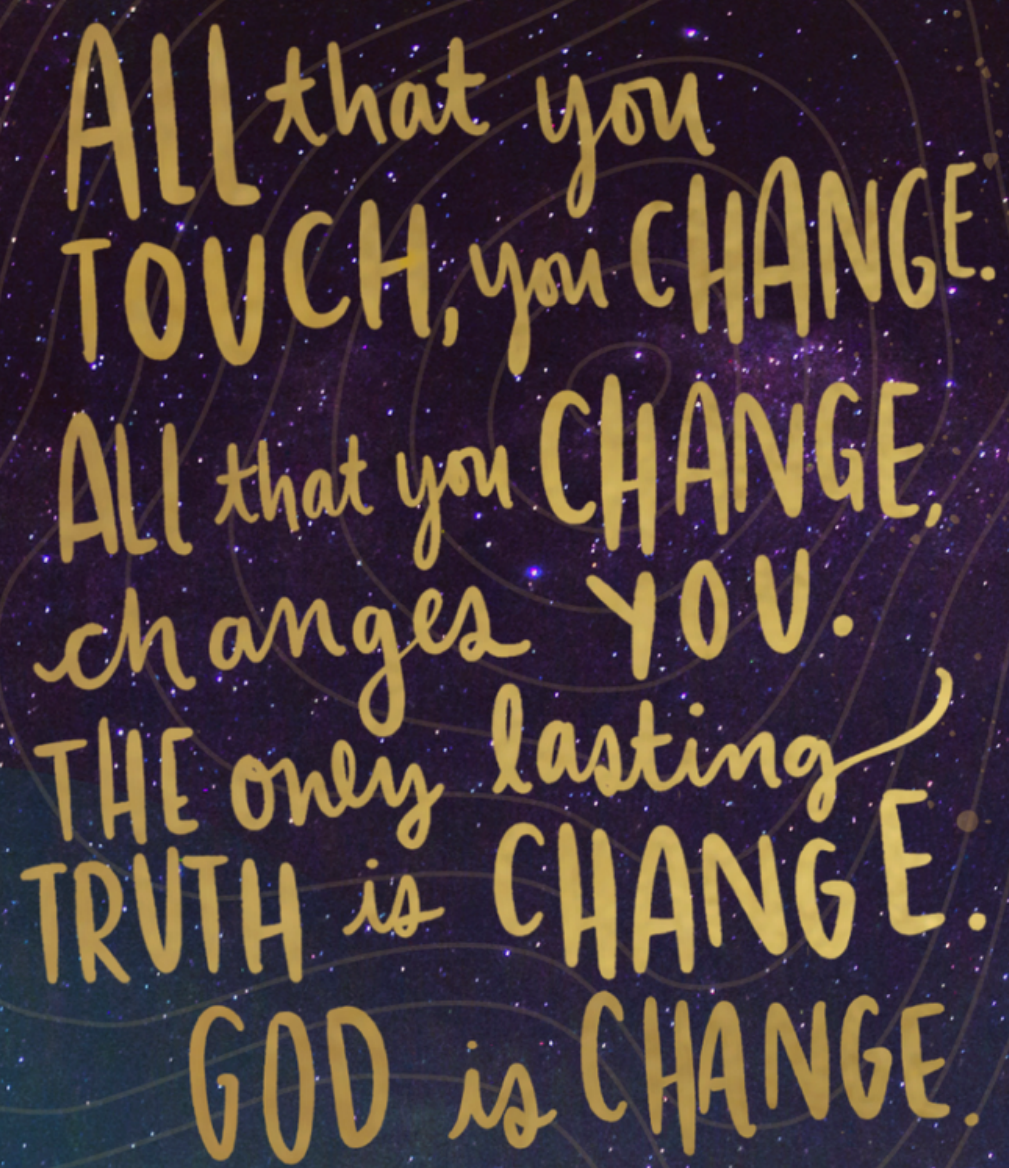 ALL that you
TOUCH, you CHANGE.
ALL that you CHANGE,
changes YOU.
THE only lasting
TRUTH is CHANGE.
GOD is CHANGE.